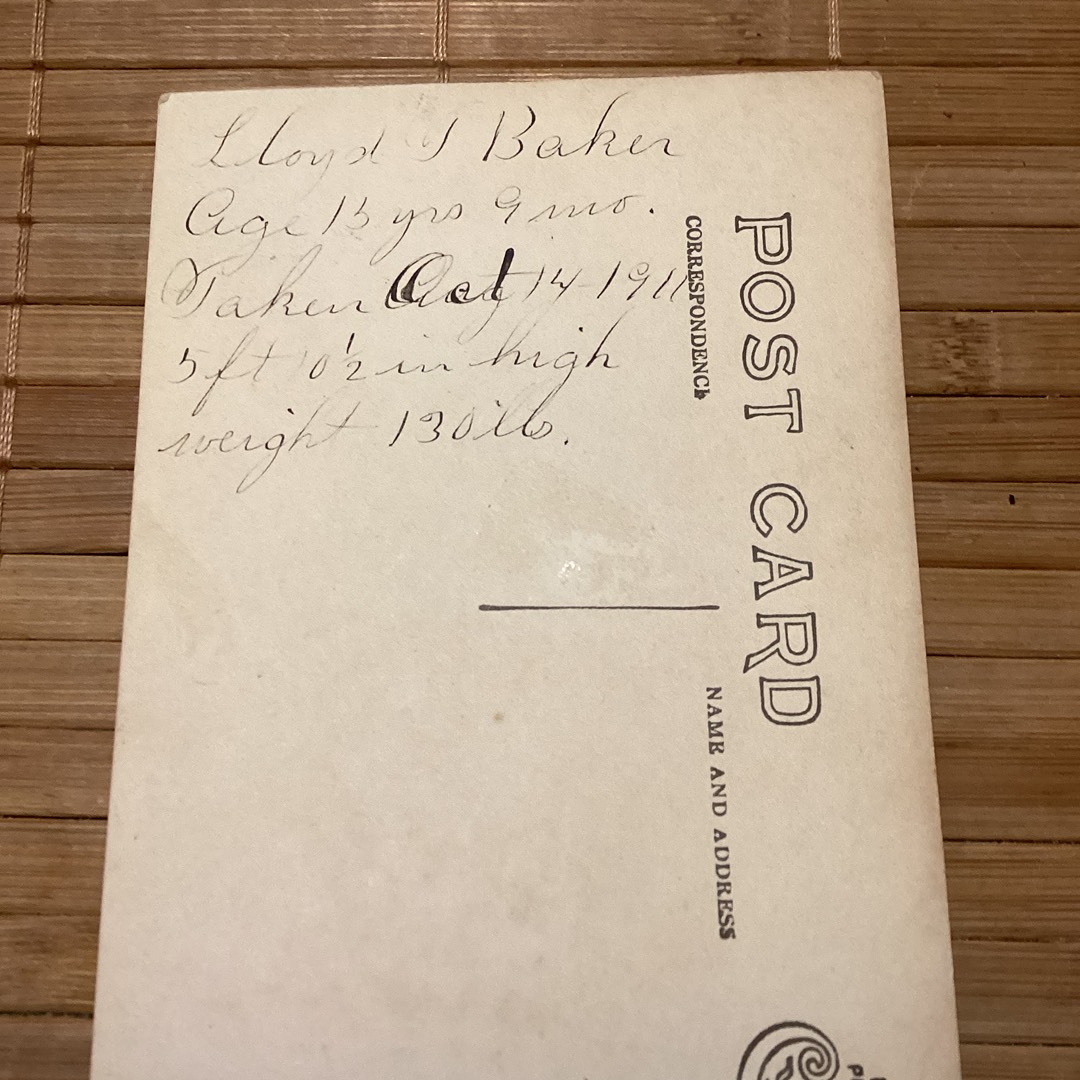 Lloyd J Baker
Age 15 yrs 9 mo.
Taken Oct 14-1911
5 ft 10 1/2 in high
weight 130 lbs.
POST CARD
CORRESPONDENCE
NAME AND ADDRESS